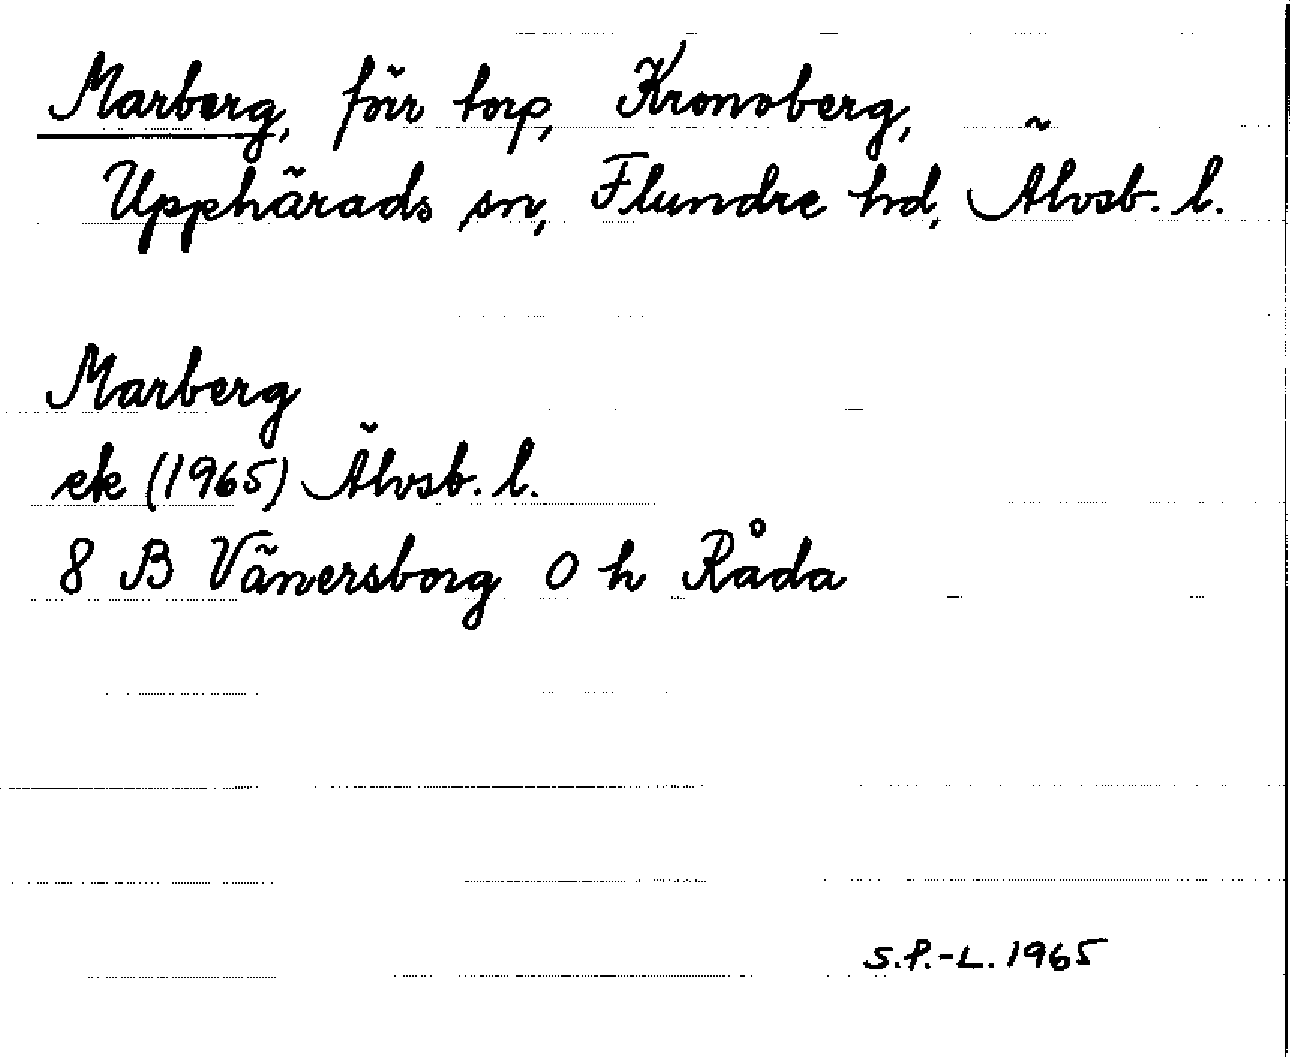 Marberg, förr torp, Kronoberg,
Upphärads sn, Flundre hd, Älvsb. l.
Marberg
ek (1965) Älvsb. l.
8 B Vänersborg 0 h Råda
S.P.-L. 1965